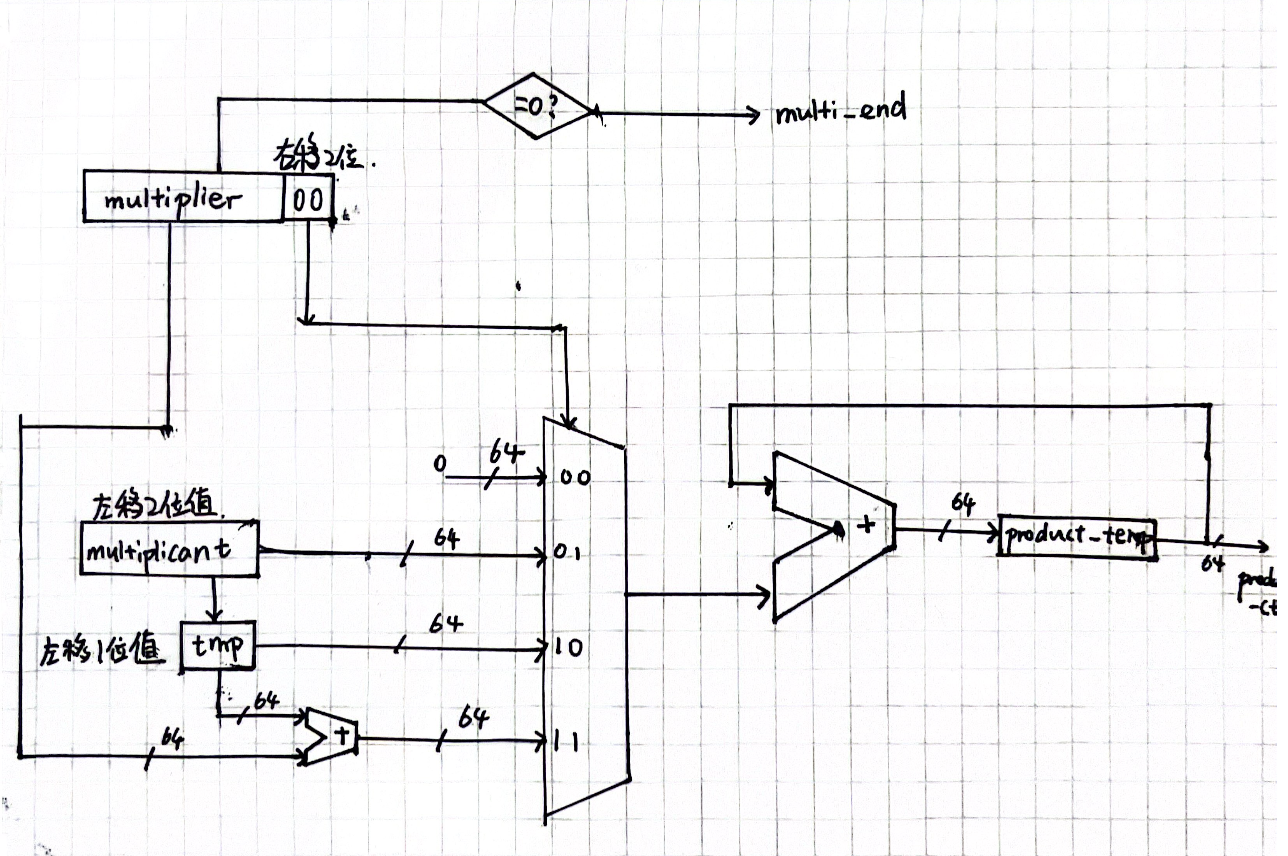 =0?
multi_end
右移2位.
multiplier 00
0 64 00
左移2位值.
multiplicant 64 01
左移1位值 tmp 64 10
64 + 64 11
64
+ 64 product_temp
64